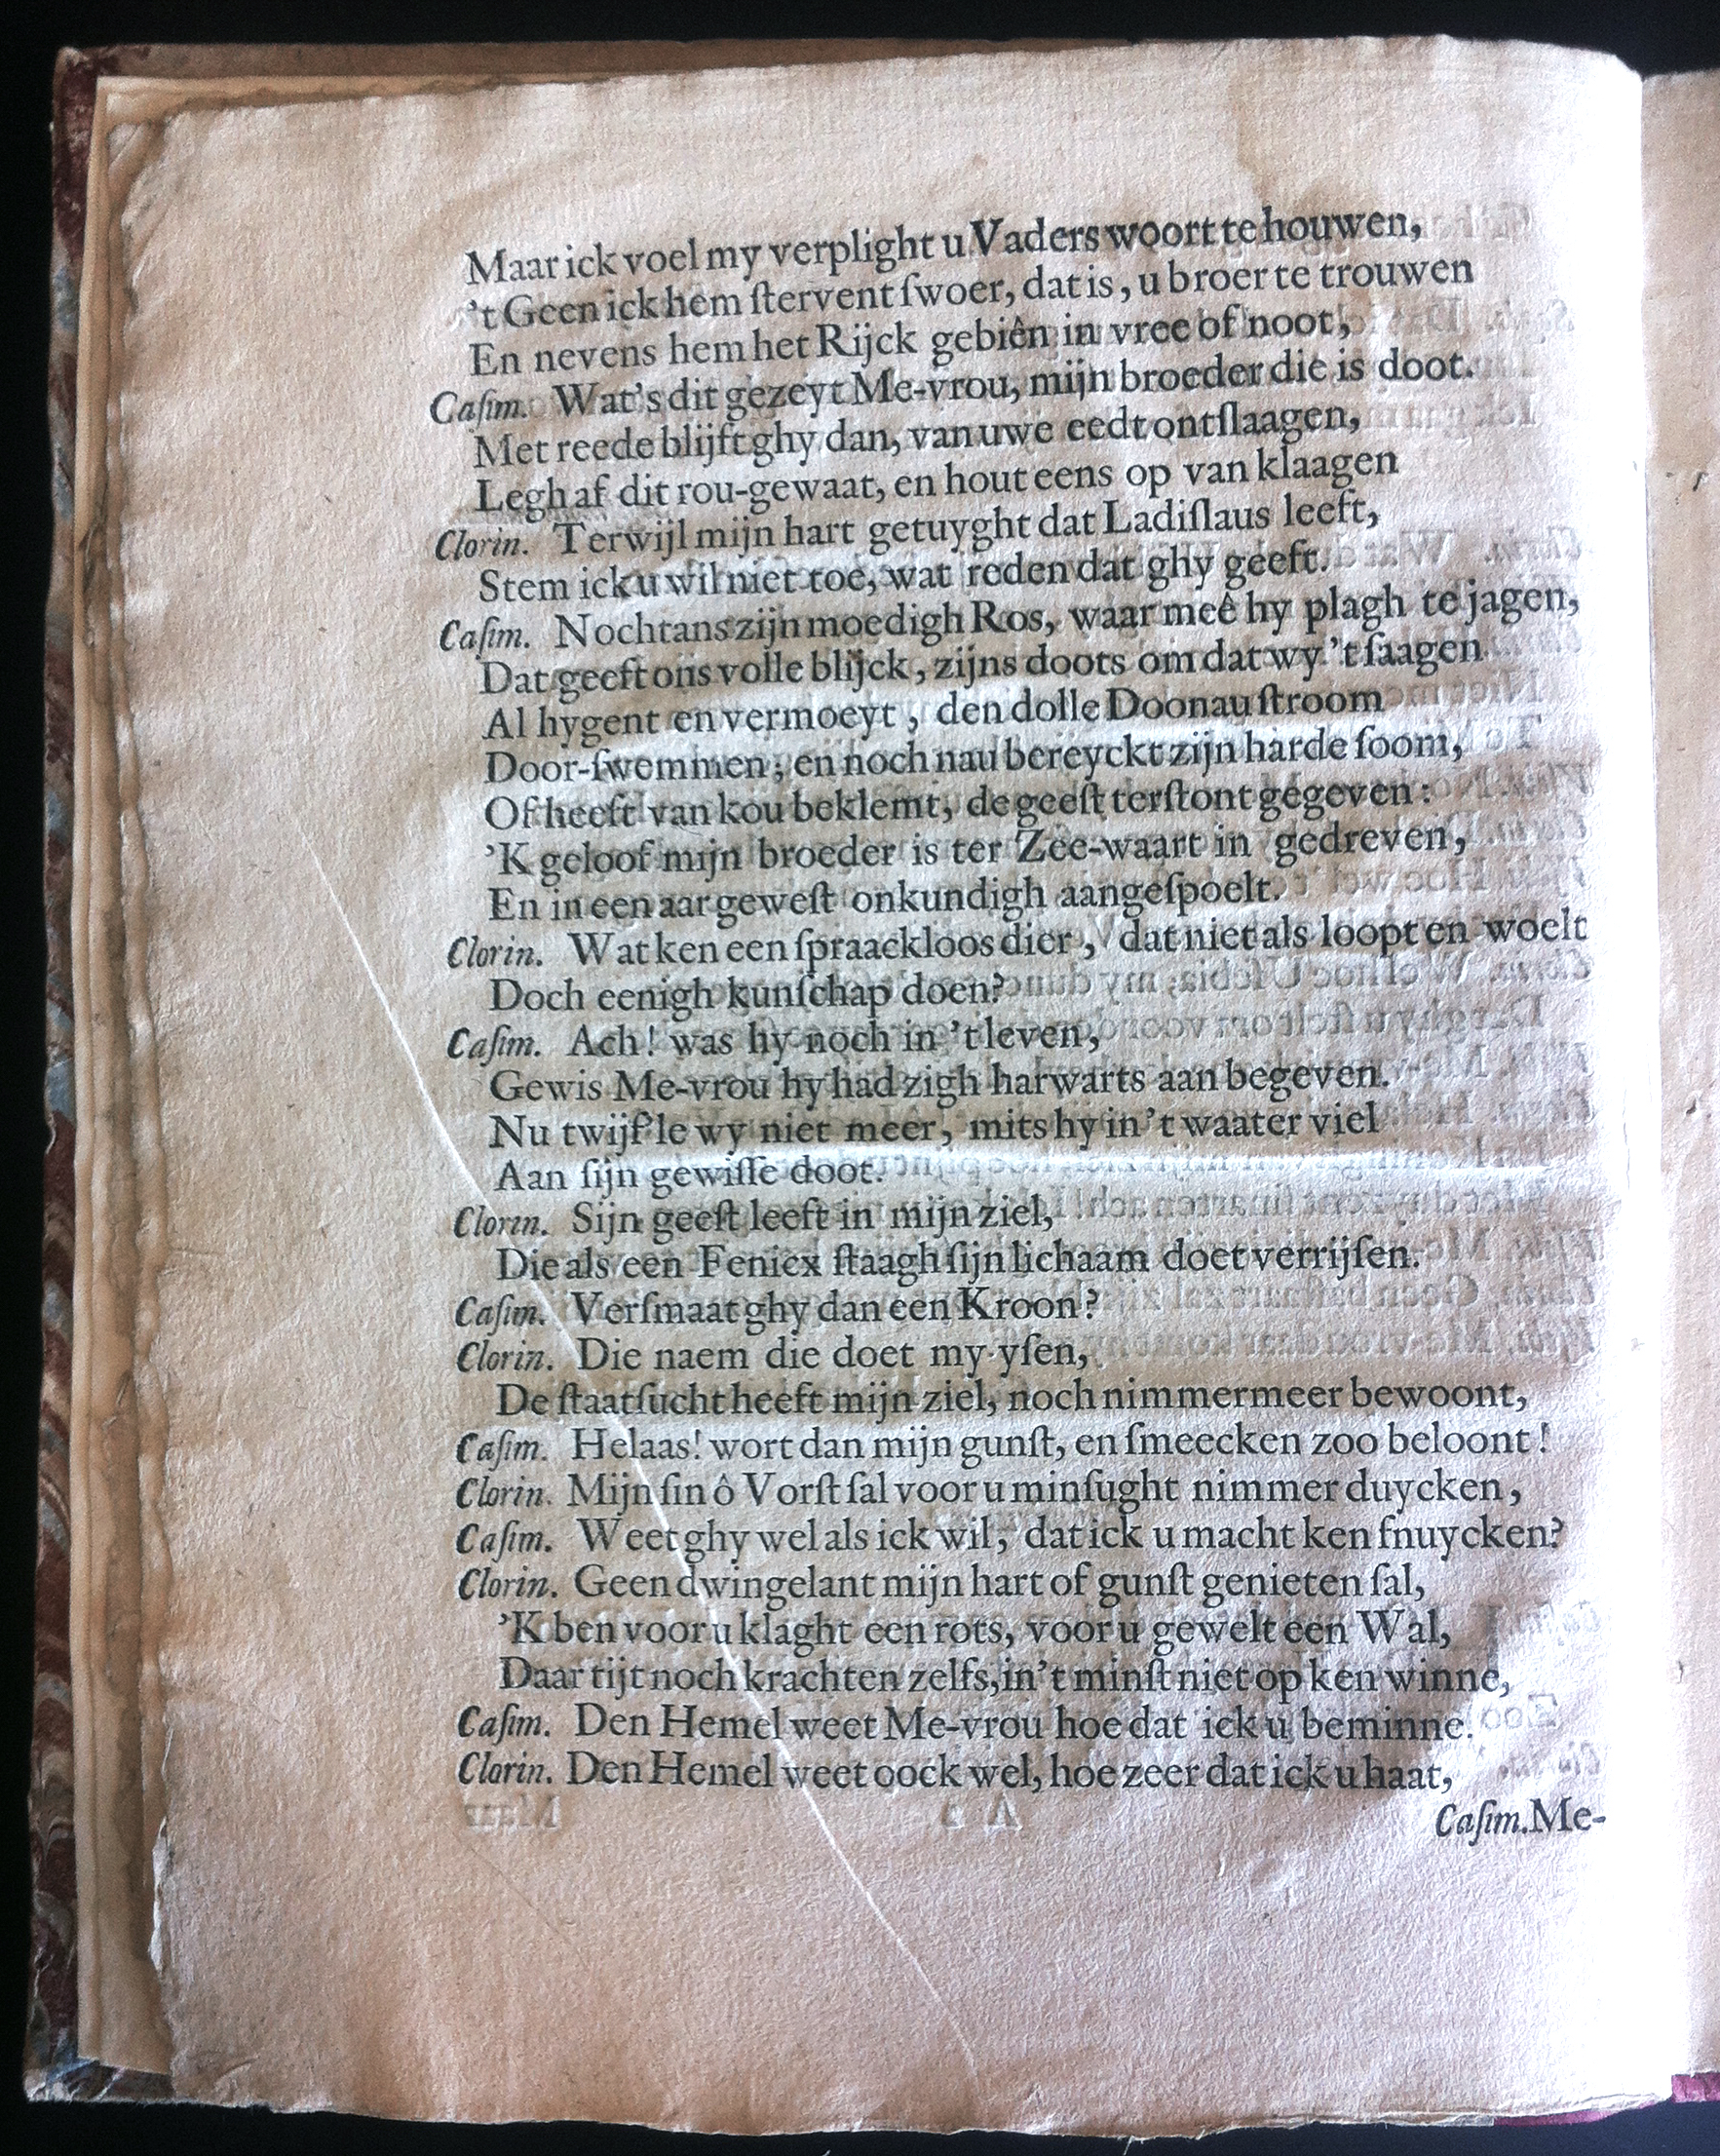 Maar ick voel my verplight u Vaders woort te houwen,
't Geen ick hem ſtervent ſwoer, dat is, u broer te trouwen
En nevens hem het Rijck gebiên in vree of noot,
Caſim. Wat's dit gezeyt Me-vrou, mijn broeder die is doot.
Met reede blijft ghy dan, van uwe eedt ontſlaagen,
Legh af dit rou-gewaat, en hout eens op van klaagen
Clorin. Terwijl mijn hart getuyght dat Ladiſlaus leeft,
Stem ick u wil niet toe, wat reden dat ghy geeft.
Caſim. Nochtans zijn moedigh Ros, waar meê hy plagh te jagen,
Dat geeft ons volle blijck, zijns doots om dat wy 't ſaagen
Al hygent en vermoeyt, den dolle Doonau ſtroom
Door-ſwemmen; en noch nau bereyckt zijn harde ſoom,
Of heeft van kou beklemt, de geeſt terſtont gegeven:
'K geloof mijn broeder is ter Zee-waart in gedreven,
En in een aar geweſt onkundigh aangeſpoelt.
Clorin. Wat ken een ſpraackloos dier, dat niet als loopt en woelt
Doch eenigh kunſchap doen?
Caſim. Ach! was hy noch in 't leven,
Gewis Me-vrou hy had zigh harwarts aan begeven.
Nu twijf'le wy niet meer, mits hy in 't waater viel
Aan ſijn gewiſſe doot.
Clorin. Sijn geeſt leeft in mijn ziel,
Die als een Feniex ſtaagh ſijn lichaam doet verrijſen.
Caſim. Verſmaat ghy dan een Kroon?
Clorin. Die naem die doet my yſen,
De ſtaatſucht heeft mijn ziel, noch nimmermeer bewoont,
Caſim. Helaas! wort dan mijn gunſt, en ſmeecken zoo beloont!
Clorin. Mijn ſin ô Vorſt ſal voor u minſught nimmer duycken,
Caſim. Weet ghy wel als ick wil, dat ick u macht ken fnuycken?
Clorin. Geen dwingelant mijn hart of gunſt genieten ſal,
'K ben voor u klaght een rots, voor u gewelt een Wal,
Daar tijt noch krachten zelfs, in't minſt niet op ken winne,
Caſim. Den Hemel weet Me-vrou hoe dat ick u beminne.
Clorin. Den Hemel weet oock wel, hoe zeer dat ick u haat,
Caſim. Me-